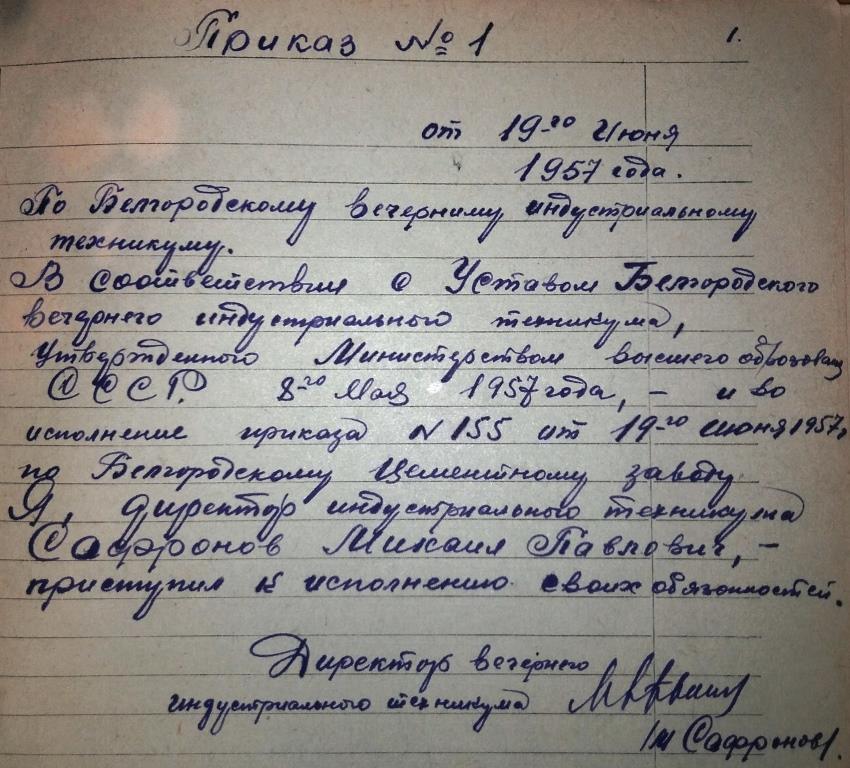 Приказ № 1
1.
от 19-го Июня
1957 года.
По Белгородскому вечернему индустриальному
техникуму.
В соответствии с Уставом Белгородского
вечернего индустриального техникума,
утвержденного Министерством высшего образован
СССР. 8-го Мая 1957 года, – и во
исполнение приказа N 155 от 19-го июня 1957,
по Белгородскому цементному заводу
Я, директор индустриального техникума
Сафронов Михаил Павлович, –
приступил к исполнению своих обязанностей.
Директор вечернего
индустриального техникума
/М Сафронов/.